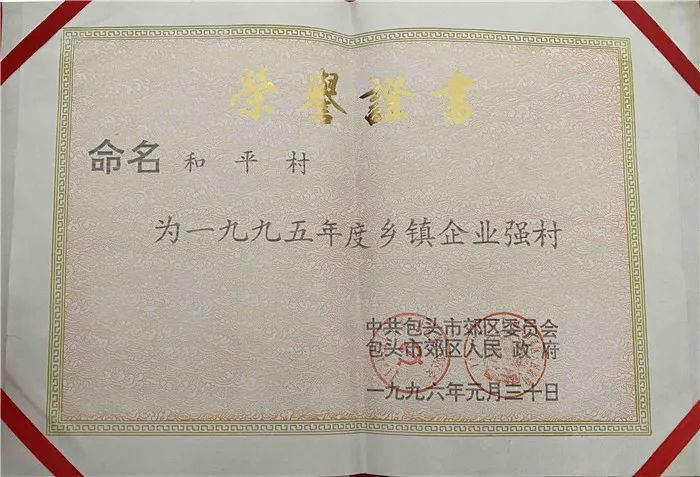 荣誉證書
命名 和平村
为一九九五年度乡镇企业强村
中共包头市郊区委员会
包头市郊区人民政府
一九九六年元月三十日